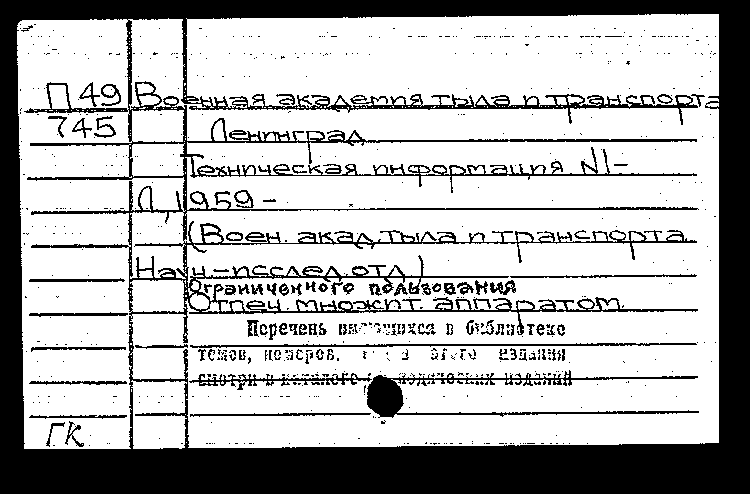 П49 Военная академия тыла и транспорта
745 Ленинград
Техническая информация N1-
Л, 1959-
(Воен. акад. тыла и транспорта.
Научн.-исслед. отд.)
Ограниченного пользования
Отпеч. множит. аппаратом.
Перечень имеющихся в библиотеке
томов, номеров, этого издания
смотри в каталоге периодических изданий
ГК